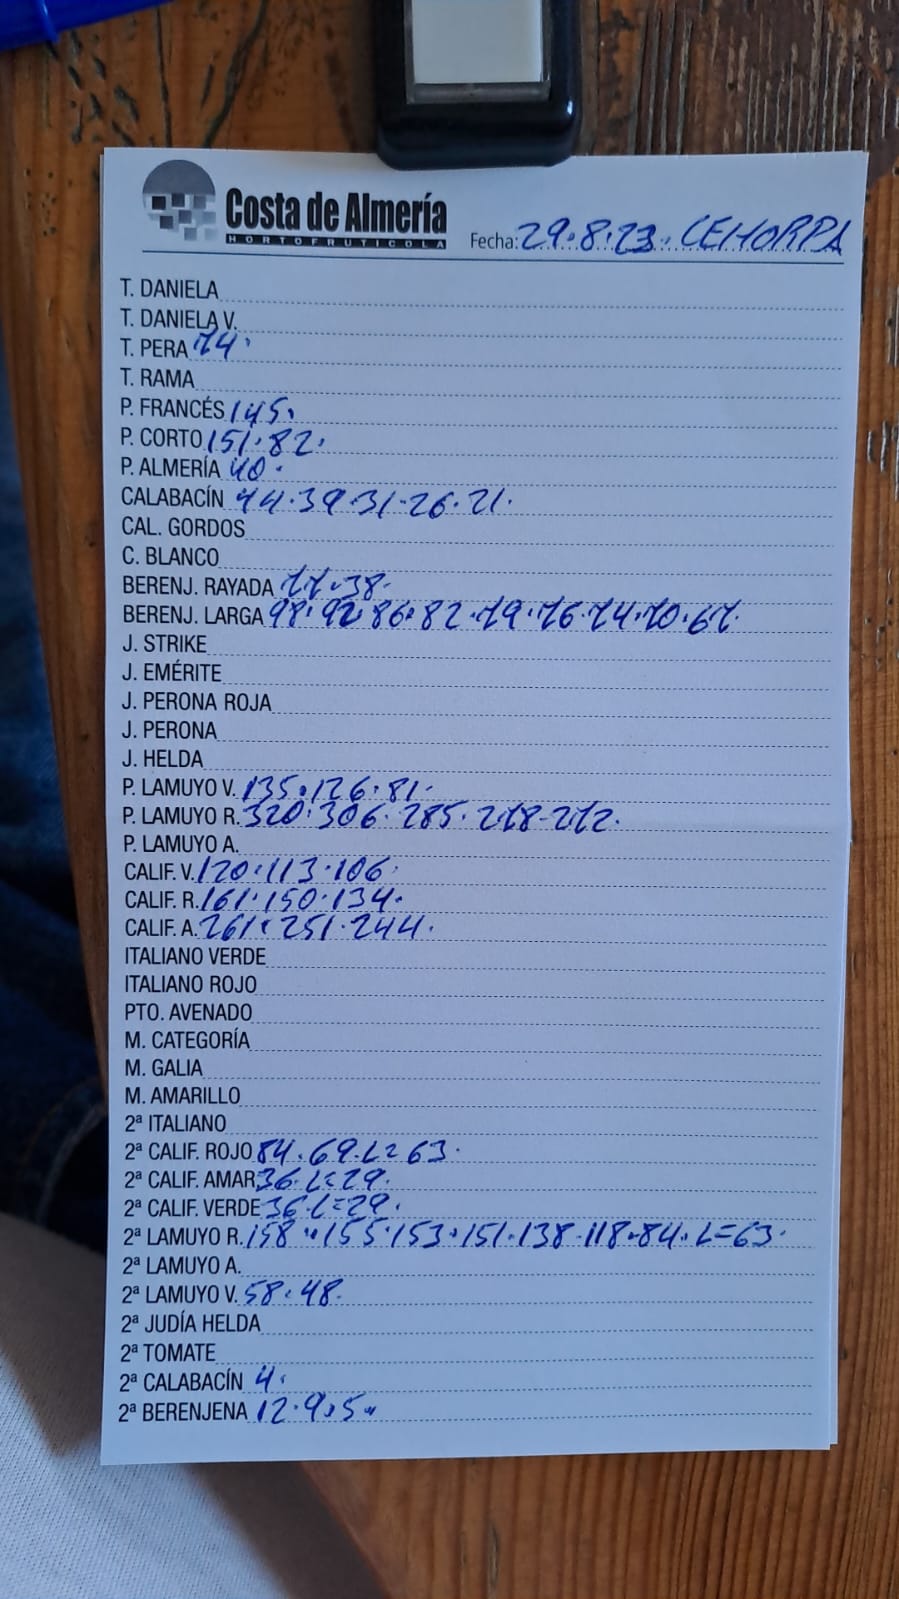 Costa de Almería
HORTOFRUTICOLA
Fecha: 29.8.23. CEHORPA
T. DANIELA
T. DANIELA V.
T. PERA 74.
T. RAMA
P. FRANCÉS 145.
P. CORTO 151.82.
P. ALMERÍA 40.
CALABACÍN 44.39.31-26.21.
CAL. GORDOS
C. BLANCO
BERENJ. RAYADA 77.38.
BERENJ. LARGA 98.92.86.82.79.76.74.70.67.
J. STRIKE
J. EMÉRITE
J. PERONA ROJA
J. PERONA
J. HELDA
P. LAMUYO V. 135.126.81.
P. LAMUYO R. 320.306.285.278-272.
P. LAMUYO A.
CALIF. V. 120.113.106.
CALIF. R. 161.150.134.
CALIF. A. 261.251.244.
ITALIANO VERDE
ITALIANO ROJO
PTO. AVENADO
M. CATEGORÍA
M. GALIA
M. AMARILLO
2ª ITALIANO
2ª CALIF. ROJO 84.69.L=63.
2ª CALIF. AMAR. 36.L=29.
2ª CALIF. VERDE 36.L=29.
2ª LAMUYO R. 158.155.153.151.138.118.84.L=63.
2ª LAMUYO A.
2ª LAMUYO V. 58.48.
2ª JUDÍA HELDA
2ª TOMATE
2ª CALABACÍN 4.
2ª BERENJENA 12.9.5.